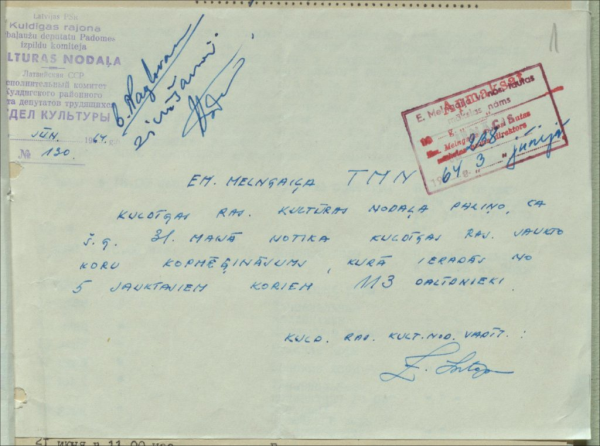 Latvijas PSR
Kuldīgas rajona
baļaužu deputātu Padomes
izpildu komiteja
LTŪRAS NODAĻA
Латвийская ССР
сполнительный комитет
Кулдигского районного
та депутатов трудящихся
ДЕЛ КУЛЬТУРЫ
JŪN. 1964.
№ 130.
zināšanai.
1
Apmaksai
E. Melngaiļa
nams
238
1964. 3. jūnijā
EM. MELNGAIĻA TMN
KULDĪGAS RAJ. KULTŪRAS NODAĻA PAZIŅO, KA
Š.G. 31. MAIJĀ NOTIKA KULDĪGAS RAJ. JAUKTO
KORU KOPMĒĢINĀJUMS, KURĀ IERADĀS NO
5 JAUKTAJIEM KORIEM 113 DALĪBNIEKI.
KULD. RAJ. KULT. NOD. VADĪT.:
21 июня в 11.00